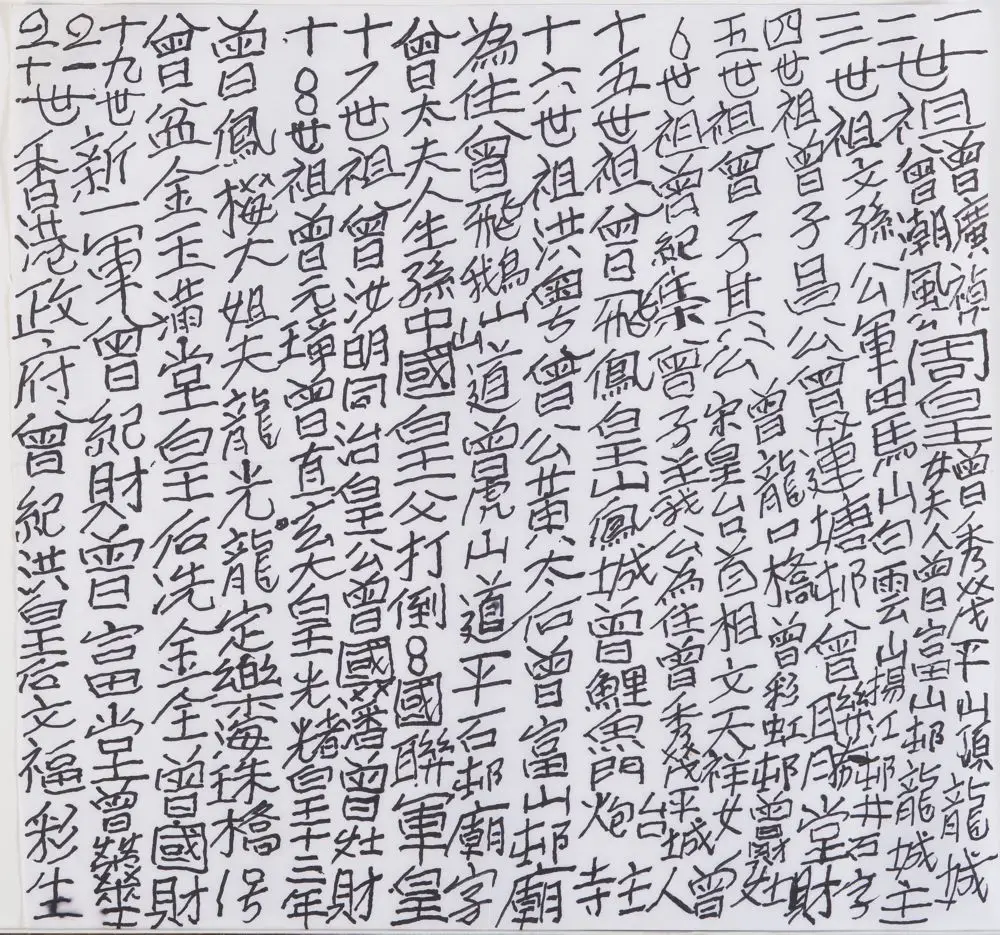 一世祖曾廣禎周皇曾秀茂平山頂龍城
二世祖曾潮風公女夫人曾富山邨龍城主
三世祖文孫公軍田馬山白雲山揚江邨井石字
四世祖曾子昌公曾双連塘邨曾財
五世祖曾子其公曾龍口橋曾彩虹邨曾財灶
宋皇台首相文天祥女曾
6世祖曾紀集曾子主我公為住曾秀茂平城人
十五世祖曾飛鳳皇山鳳城曾鯉魚門炮台主寺
十六世祖洪粵曾公黃太后曾富山邨廟
為住曾飛鵝山道曾虎山道平石邨廟字
曾太夫人生孫中國皇父打倒8國聯軍皇
十八世祖曾汝明同治皇公曾國藩曾灶財
十八世祖曾元璋曾直玄大皇光緒皇十三年
曾鳳梅大姐夫龍光龍定樂海珠橋
曾盆金玉滿堂皇后洗金全曾國財
十九世新一軍曾紀財曾富堂曾
21世香港政府曾紀洪皇后文福彩生